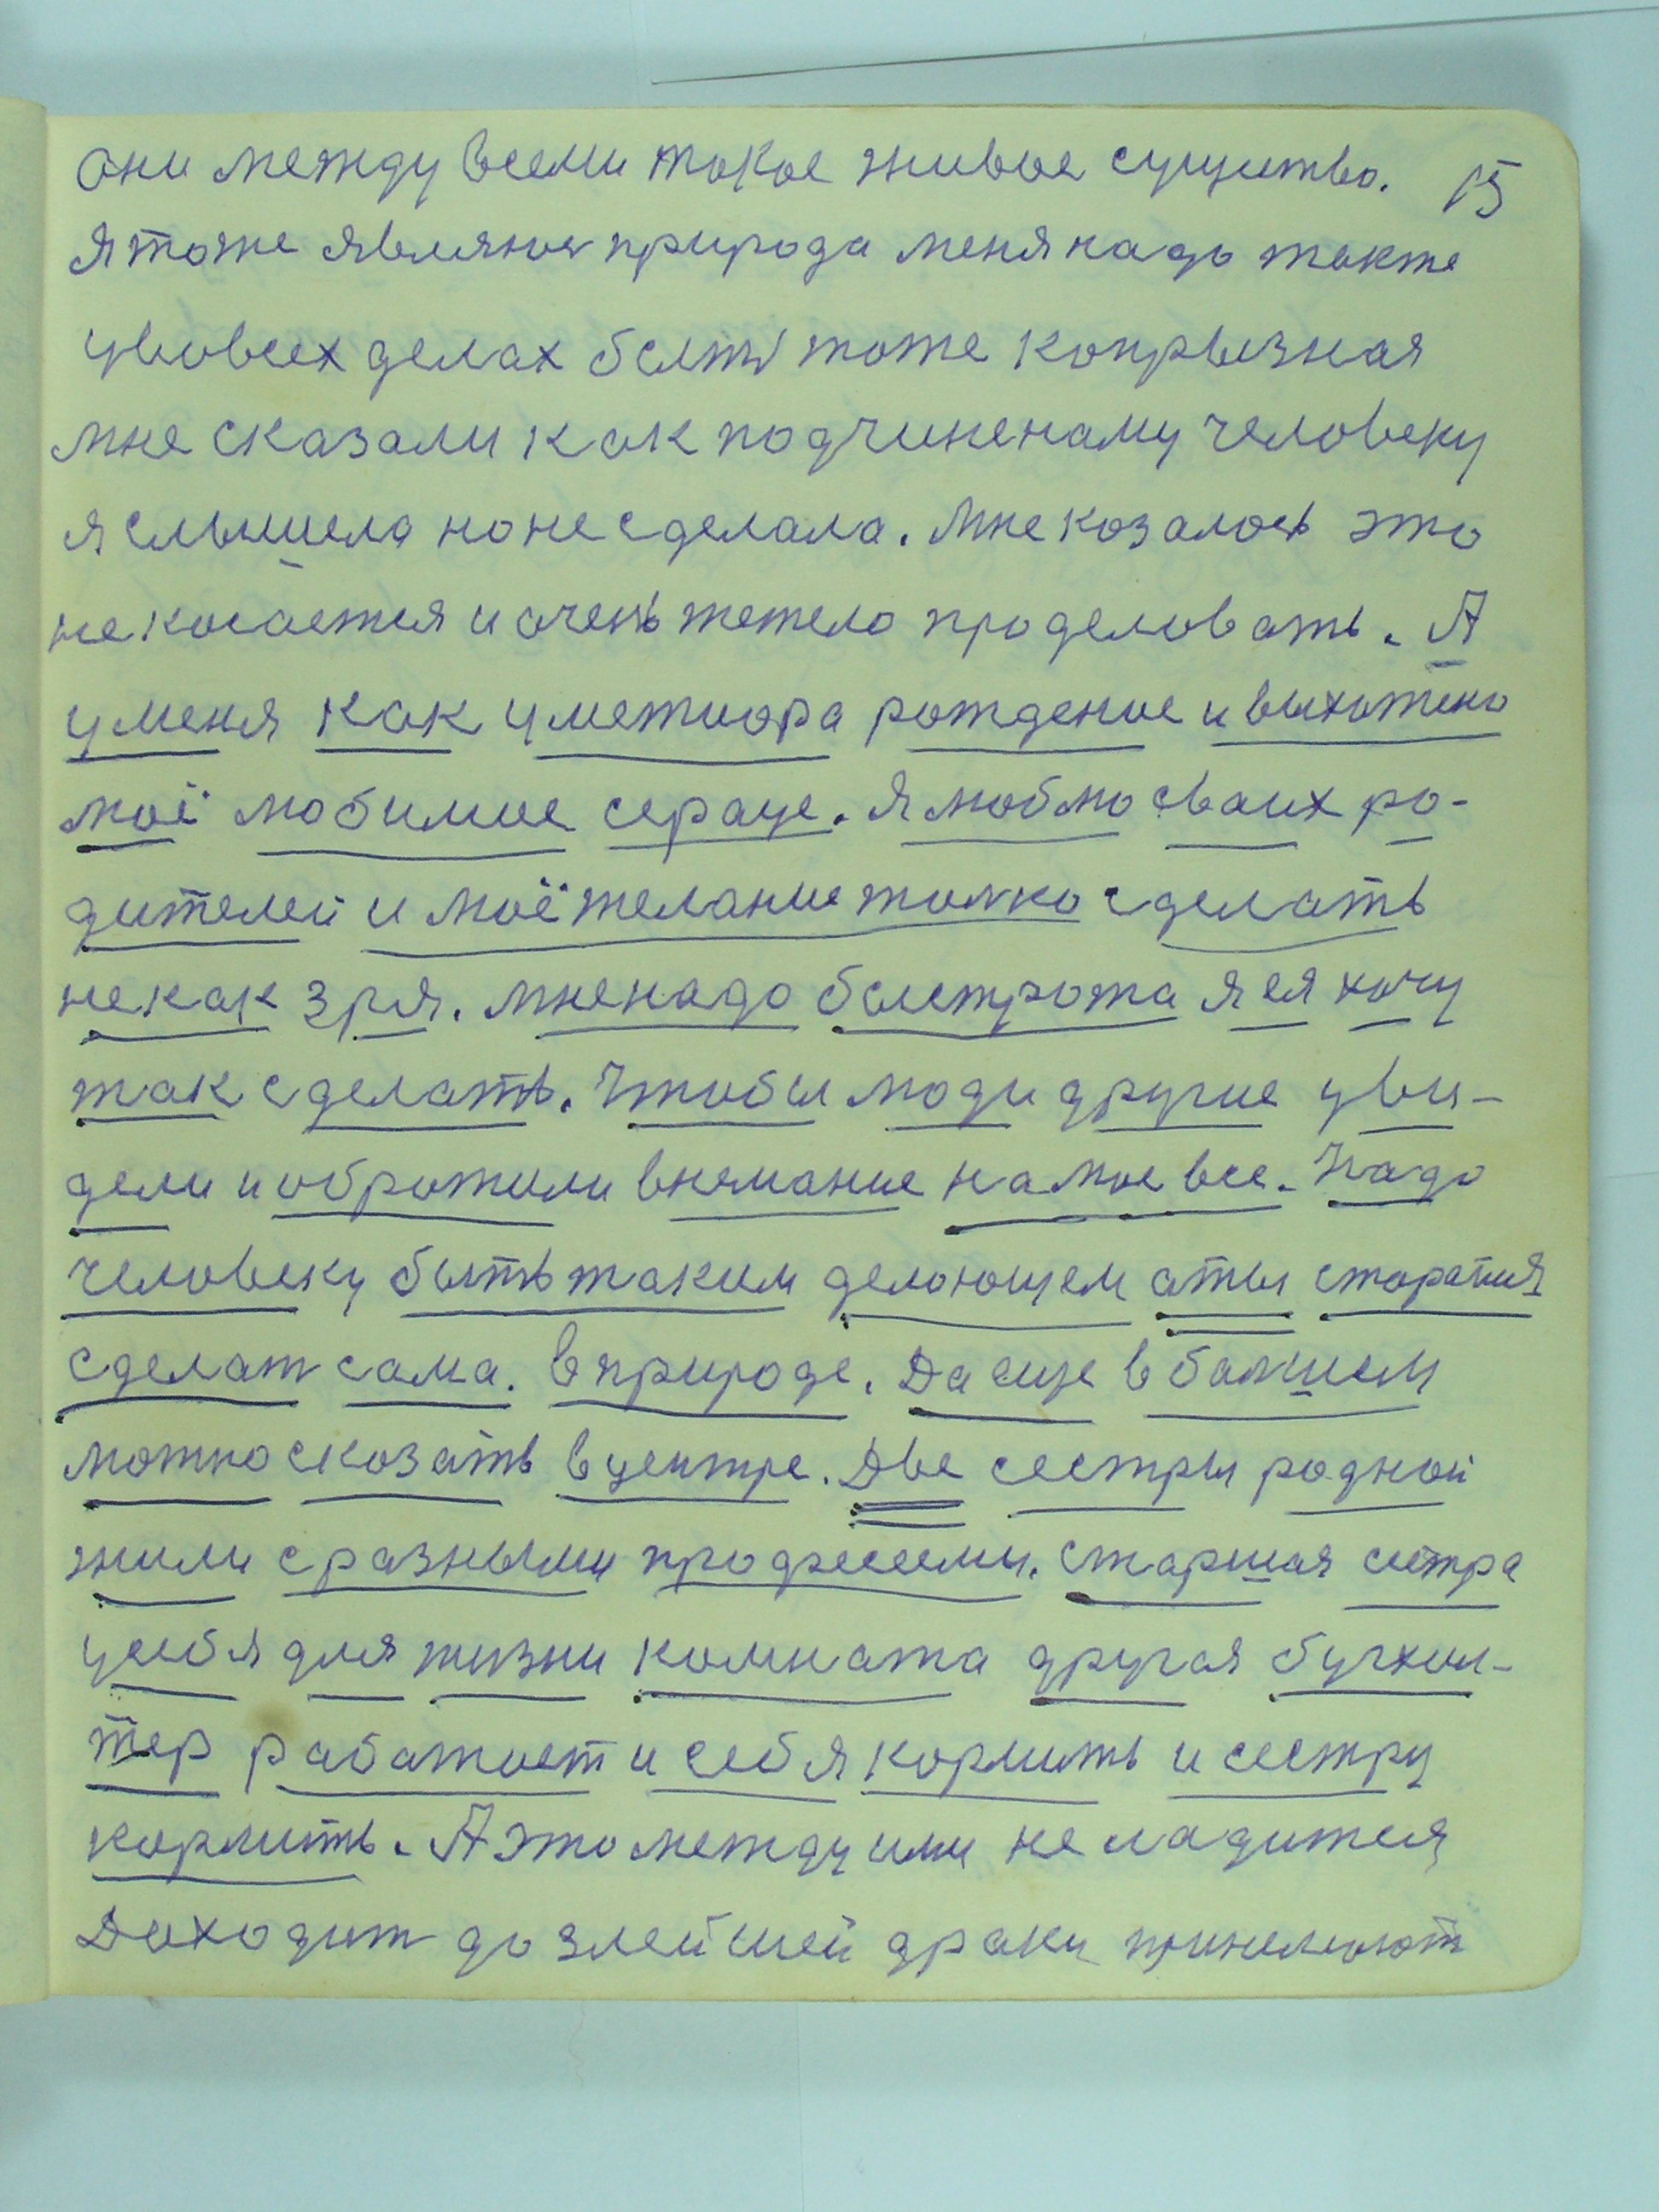 они между всеми такое живое существо. 15
Я тоже являюся природа меня надо также
увовсех делах быть тоже копрызная
мне сказали как подчиненаму человеку
я слышела но не сделала. Мне козалось это
не косается и очень тежело проделовать. А
у меня как уметиора рождение и выхожено
моё любимое сердце. Я люблю сваих ро-
дителей и моё желание толко сделать
не как зря. мне надо быстрота я ея хочу
так сделать. Чтобы люди другие уви-
дели и обротили внемание на мое все. Надо
человеку быть таким делоющем аты старатия
сделат сама. в природе. Да еще в болшем
можно сказать в центре. Две сестры родной
жили с разными профессеми. старшая сестра
у себя для жизни комната другая бугхол-
тер работает и себя кормить и сестру
кормить. А это между ими не ладится
Доходит до злейшей драки